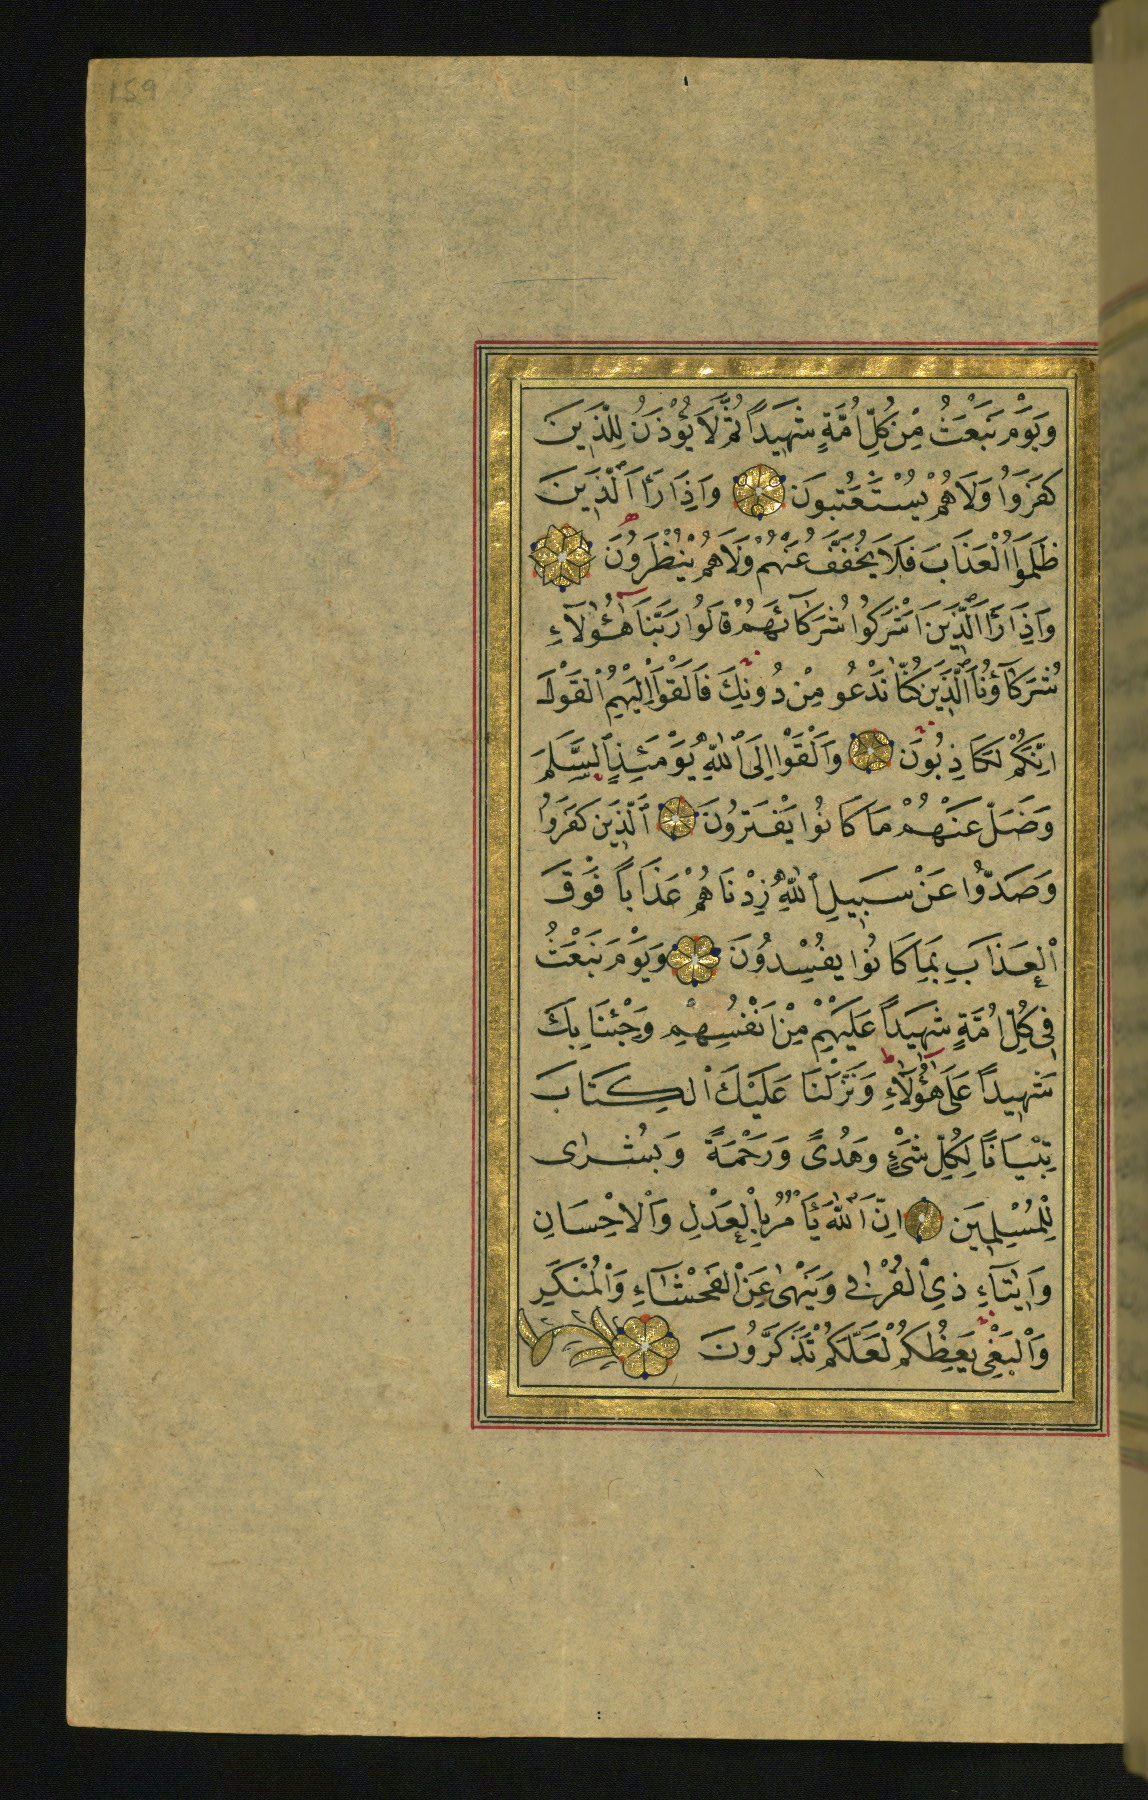 وَيَوْمَ نَبْعَثُ مِنْ كُلِّ اُمَّةٍ شَهِيداً ثُمَّ لَا يُؤْذَنُ لِلَّذِينَ
كَفَرُوا وَلَا هُمْ يُسْتَعْتَبُونَ وَاِذَا رَاَ الَّذِينَ
ظَلَمُوا الْعَذَابَ فَلَا يُخَفَّفُ عَنْهُمْ وَلَا هُمْ يُنْظَرُونَ
وَاِذَا رَاَ الَّذِينَ اَشْرَكُوا شُرَكَآئَهُمْ قَالُوا رَبَّنَا هٰٓؤُلَآءِ
شُرَكَآؤُنَا الَّذِينَ كُنَّا نَدْعُو مِنْ دُونِكَ فَاَلْقَوْا اِلَيْهِمُ الْقَوْلَ
اِنَّكُمْ لَكَاذِبُونَ وَاَلْقَوْا اِلَى اللّٰهِ يَوْمَئِذٍ السَّلَمَ
وَضَلَّ عَنْهُمْ مَا كَانُوا يَفْتَرُونَ اَلَّذِينَ كَفَرُوا
وَصَدُّوا عَنْ سَبِيلِ اللّٰهِ زِدْنَاهُمْ عَذَاباً فَوْقَ
الْعَذَابِ بِمَا كَانُوا يُفْسِدُونَ وَيَوْمَ نَبْعَثُ
فِي كُلِّ اُمَّةٍ شَهِيداً عَلَيْهِمْ مِنْ اَنْفُسِهِمْ وَجِئْنَا بِكَ
شَهِيداً عَلَى هٰٓؤُلَآءِ وَنَزَّلْنَا عَلَيْكَ الْكِتَابَ
تِبْيَاناً لِكُلِّ شَيْءٍ وَهُدًى وَرَحْمَةً وَبُشْرٰى
لِلْمُسْلِمِينَ اِنَّ اللّٰهَ يَأْمُرُ بِالْعَدْلِ وَالْاِحْسَانِ
وَاِيتَآءِ ذِي الْقُرْبٰى وَيَنْهٰى عَنِ الْفَحْشَآءِ وَالْمُنْكَرِ
وَالْبَغْيِ يَعِظُكُمْ لَعَلَّكُمْ تَذَكَّرُونَ